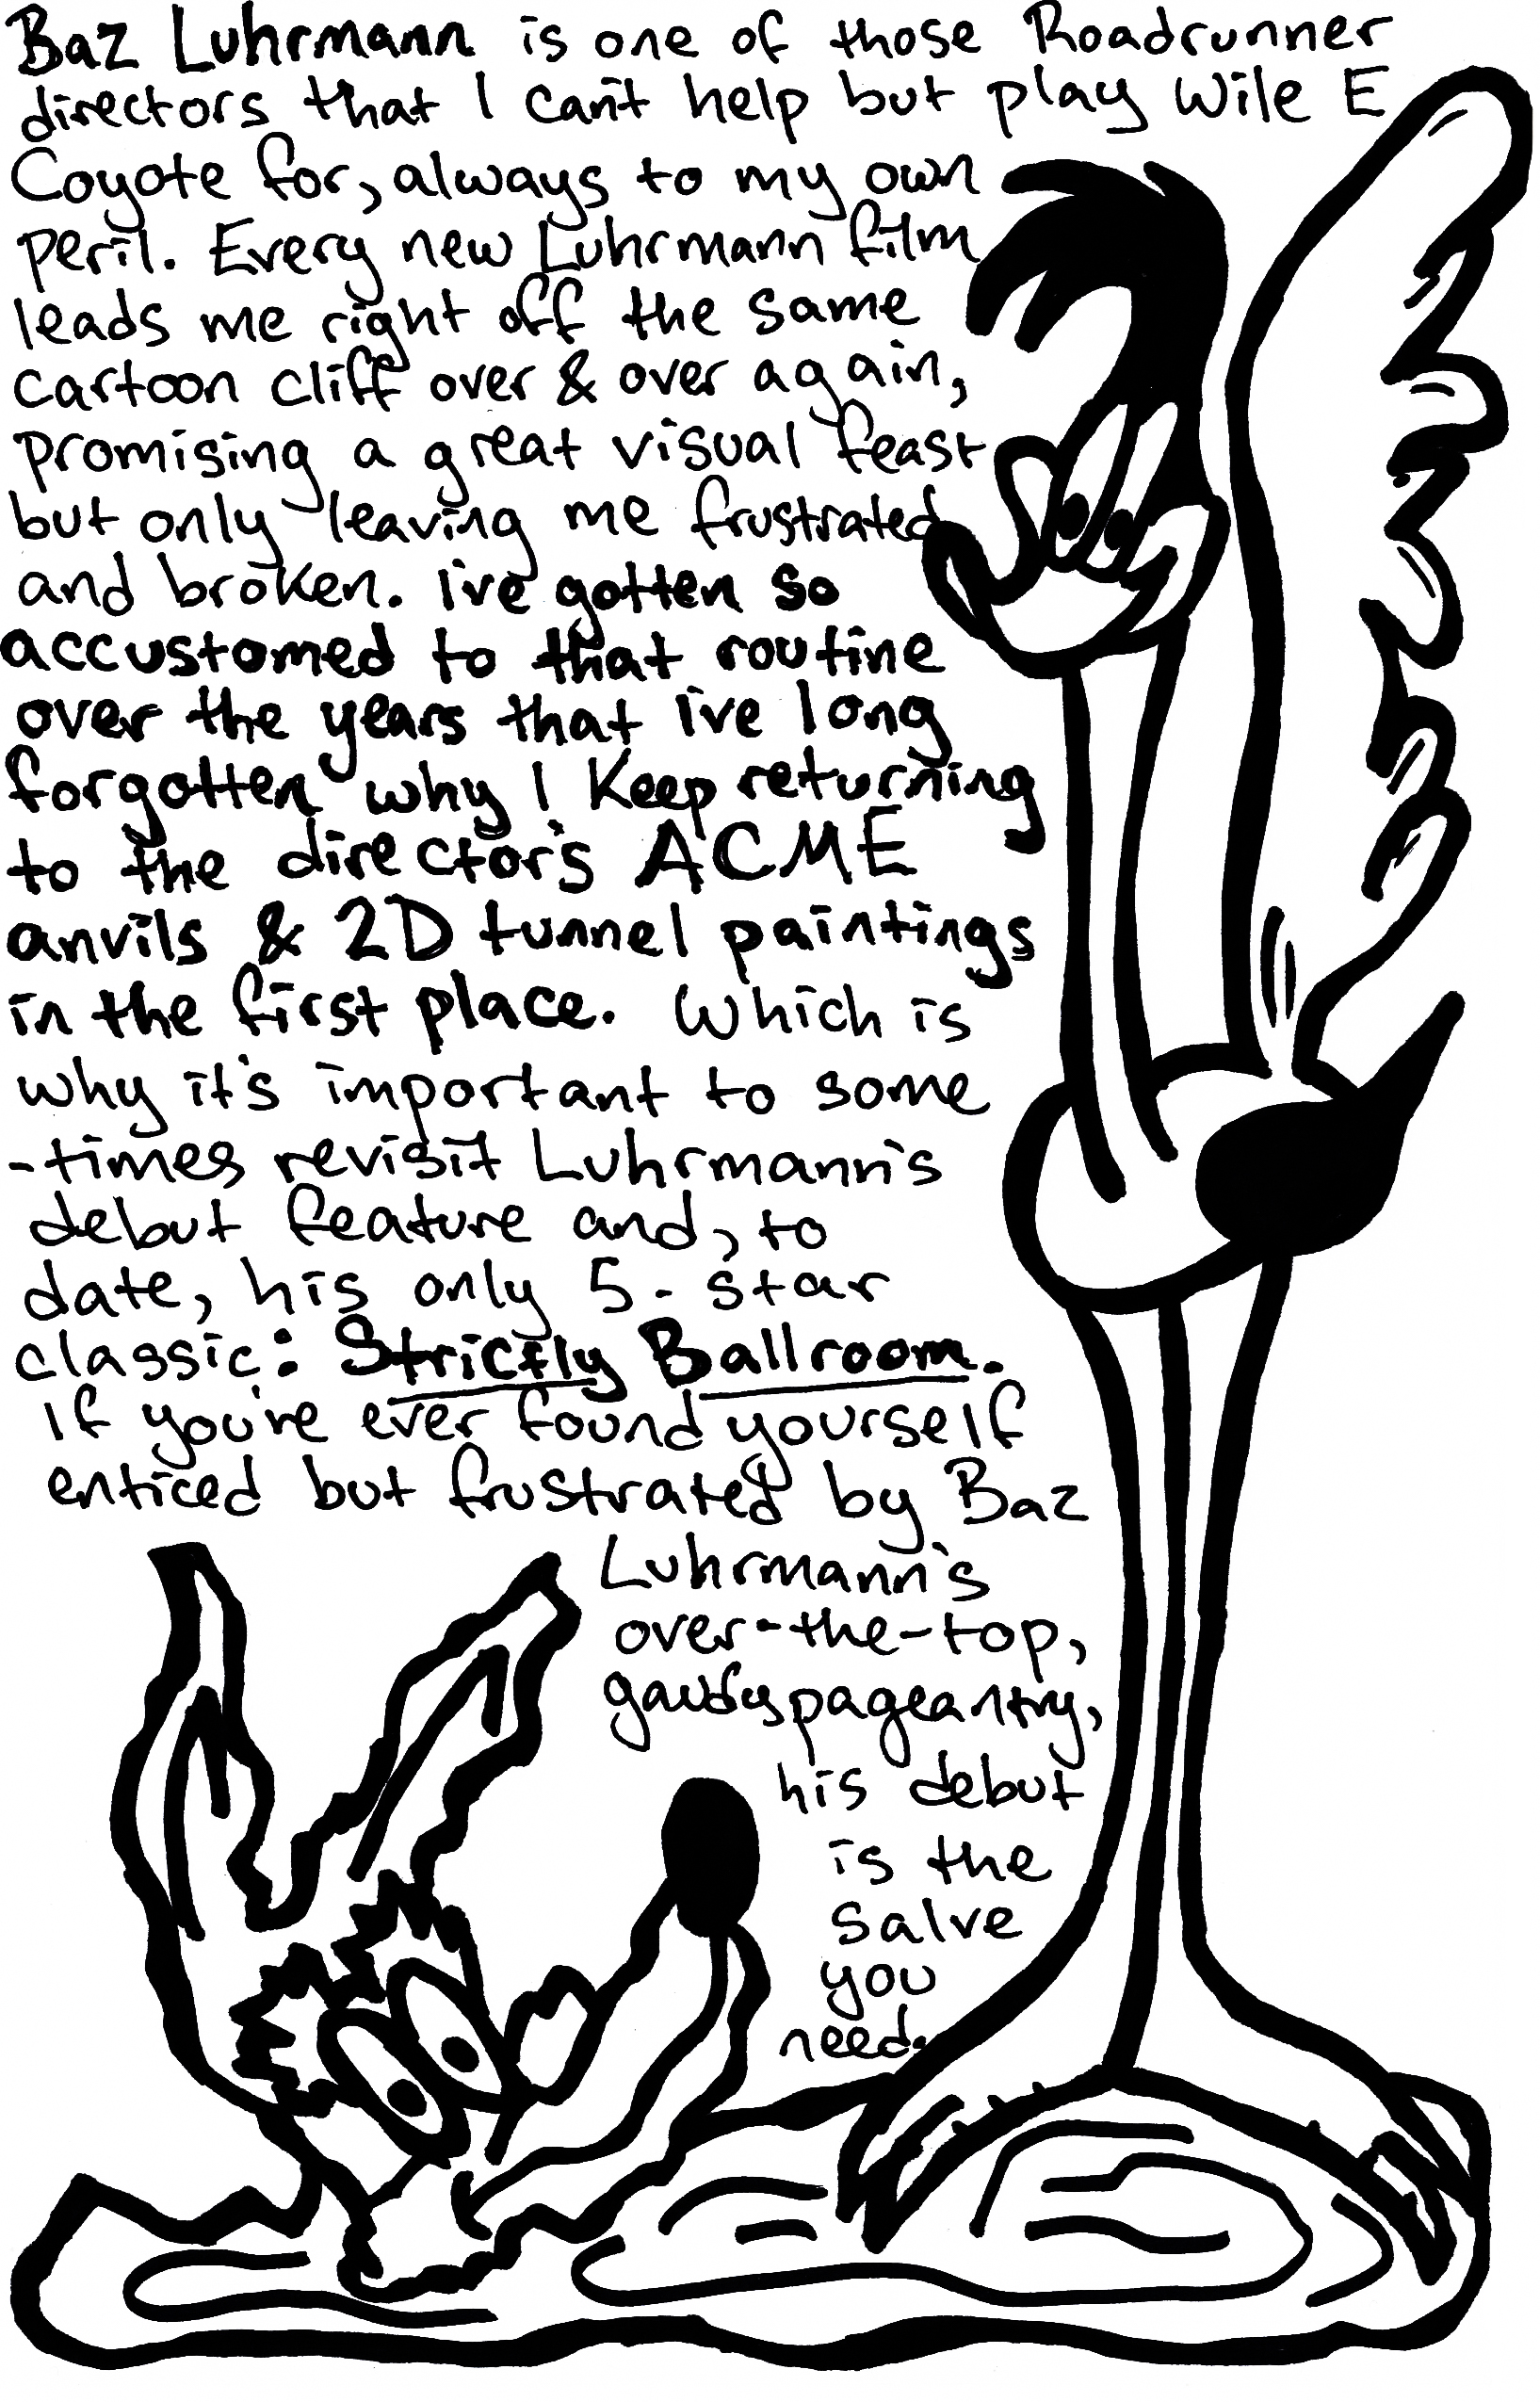 Baz Luhrmann is one of those Roadrunner
directors that I can't help but play Wile E
Coyote for, always to my own
peril. Every new Luhrmann film
leads me right off the same
cartoon cliff over & over again,
promising a great visual feast
but only leaving me frustrated
and broken. i've gotten so
accustomed to that routine
over the years that i've long
forgotten why I keep returning
to the director's ACME
anvils & 2D tunnel paintings
in the first place. Which is
why it's important to some
-times revisit Luhrmann's
debut feature and, to
date, his only 5-star
classic: Strictly Ballroom.
if you've ever found yourself
enticed but frustrated by Baz
Luhrmann's
over-the-top,
gaudy pageantry,
his debut
is the
salve
you
need.